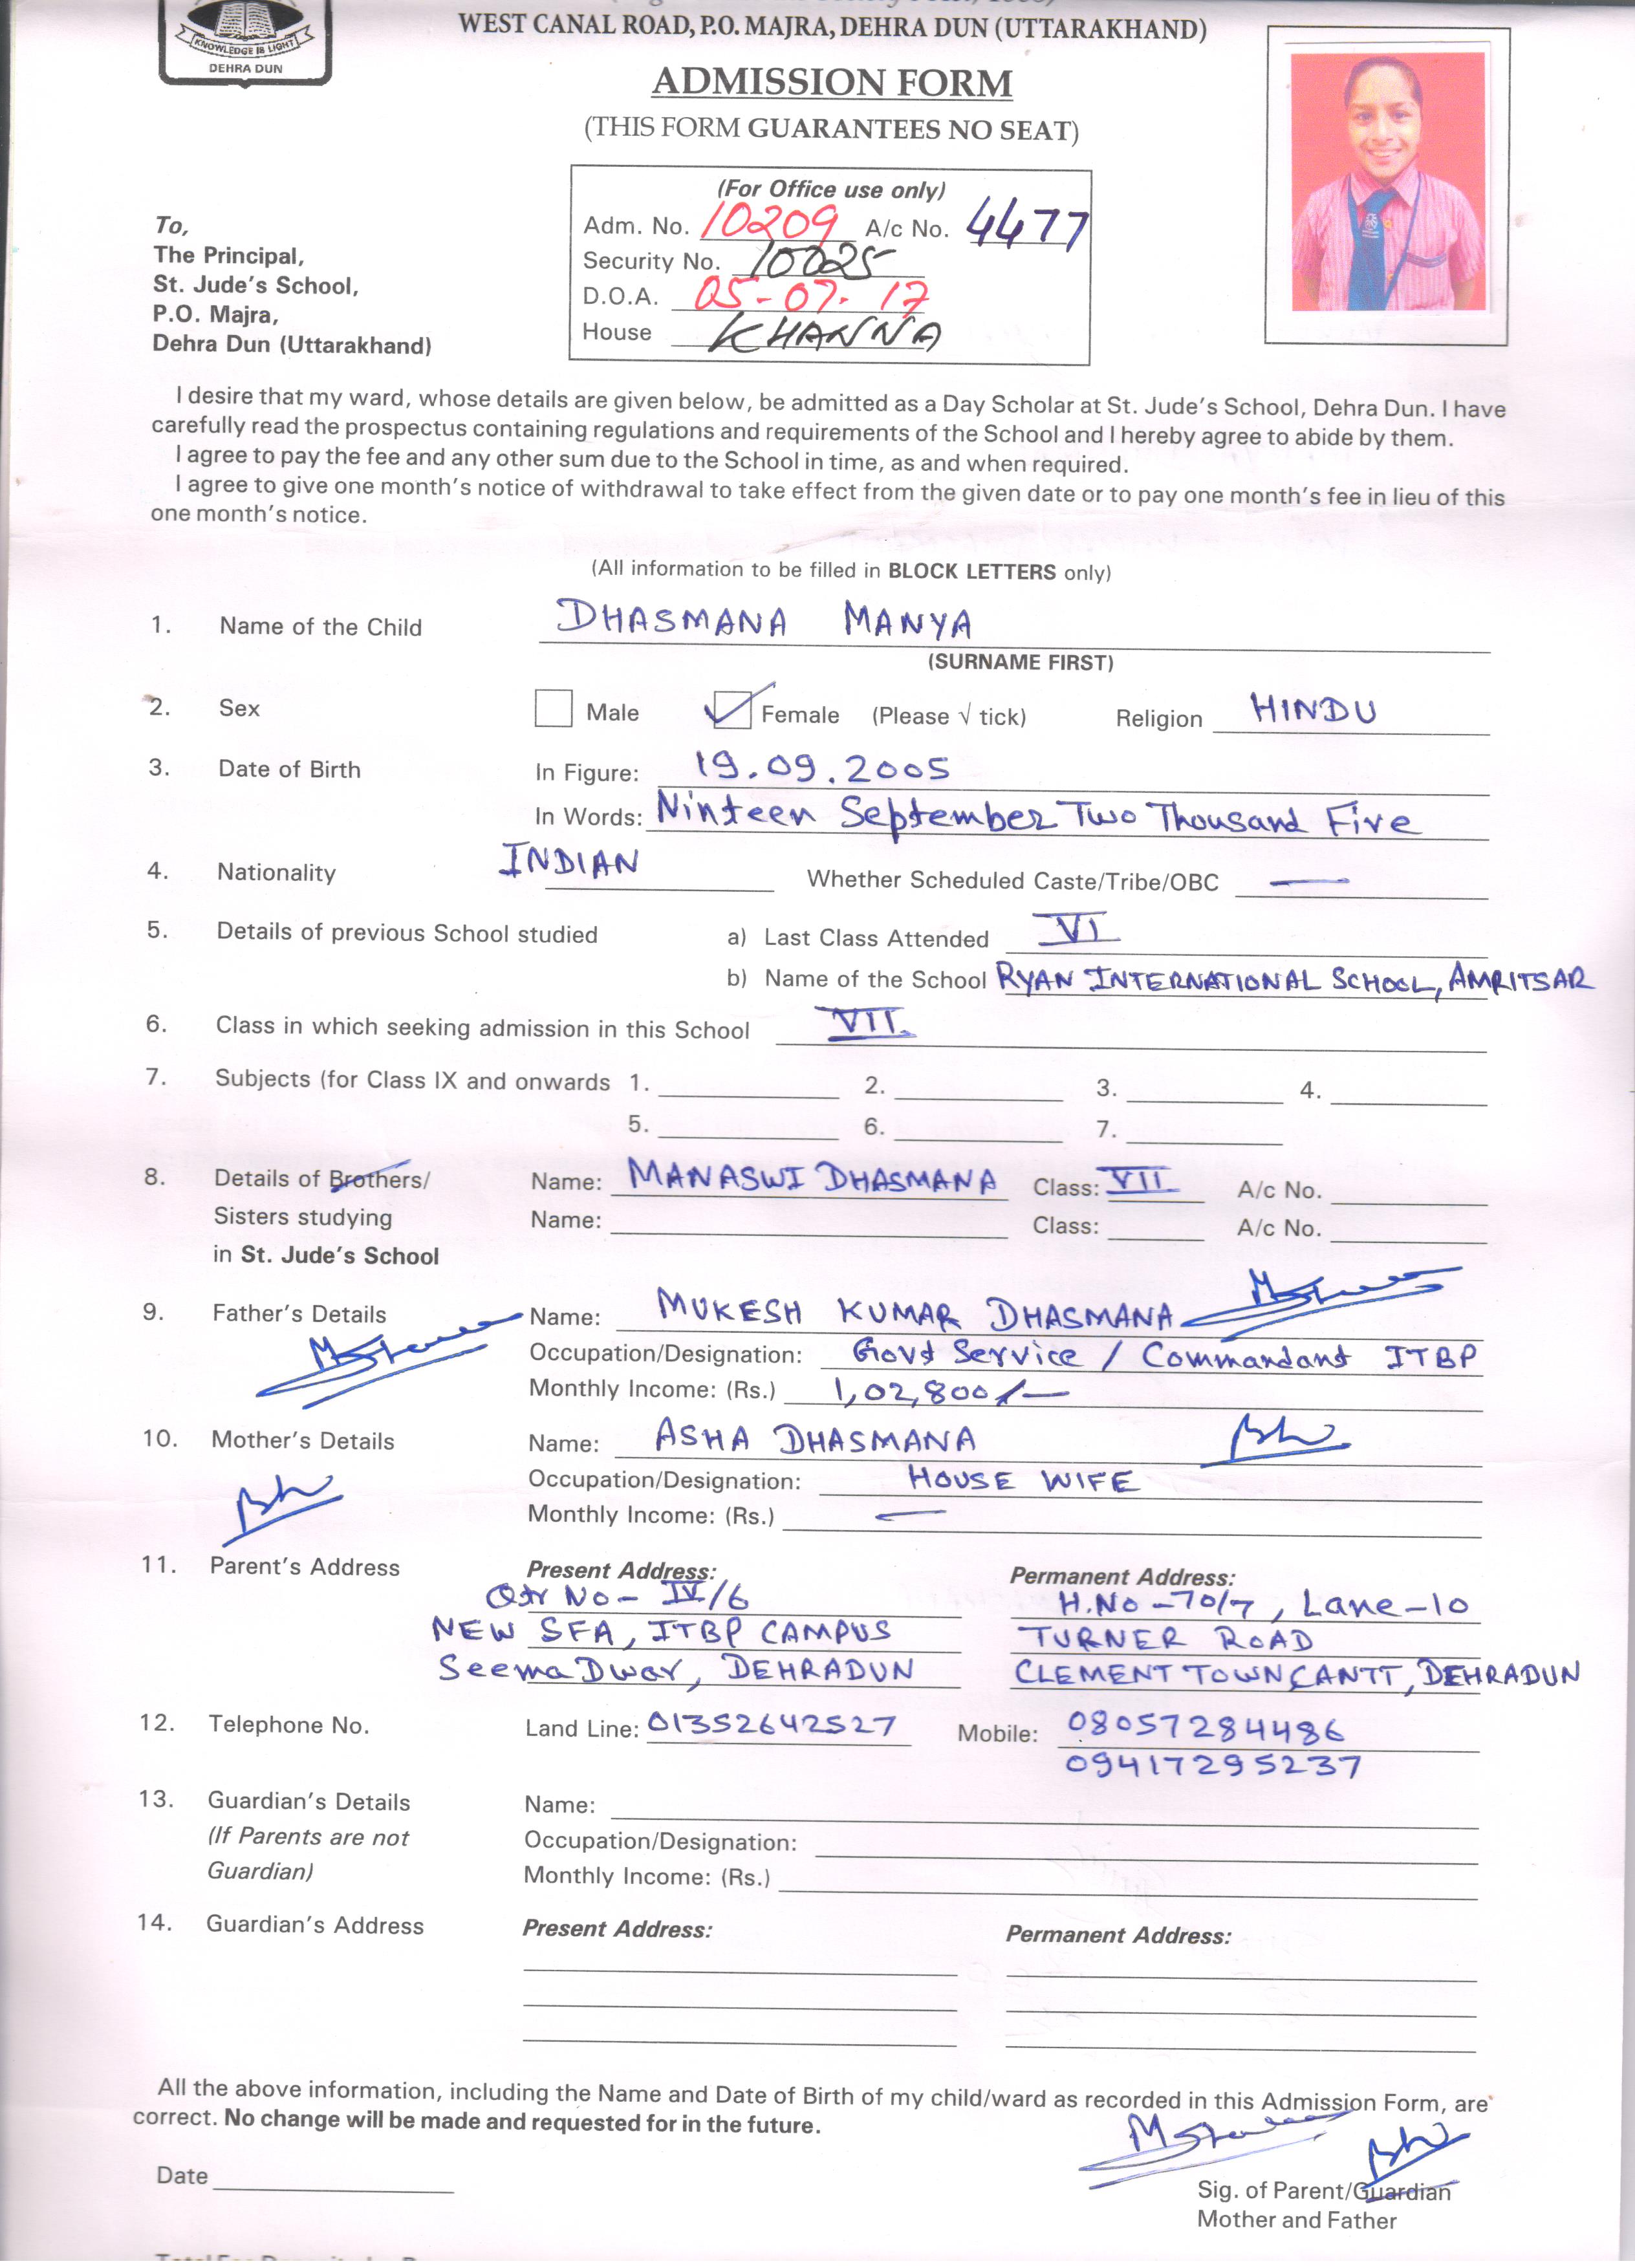 WEST CANAL ROAD, P.O. MAJRA, DEHRA DUN (UTTARAKHAND)
KNOWLEDGE IS LIGHT
DEHRA DUN
ADMISSION FORM
(THIS FORM GUARANTEES NO SEAT)
(For Office use only)
Adm. No. 10209 A/c No. 4477
Security No. 10025
D.O.A. 05-07-17
House KHANNA
To,
The Principal,
St. Jude's School,
P.O. Majra,
Dehra Dun (Uttarakhand)
I desire that my ward, whose details are given below, be admitted as a Day Scholar at St. Jude's School, Dehra Dun. I have
carefully read the prospectus containing regulations and requirements of the School and I hereby agree to abide by them.
I agree to pay the fee and any other sum due to the School in time, as and when required.
I agree to give one month's notice of withdrawal to take effect from the given date or to pay one month's fee in lieu of this
one month's notice.
(All information to be filled in BLOCK LETTERS only)
1. Name of the Child DHASMANA MANYA
(SURNAME FIRST)
2. Sex Male Female (Please √ tick) Religion HINDU
3. Date of Birth In Figure: 19.09.2005
In Words: Ninteen September Two Thousand Five
4. Nationality INDIAN Whether Scheduled Caste/Tribe/OBC —
5. Details of previous School studied a) Last Class Attended VI
b) Name of the School RYAN INTERNATIONAL SCHOOL, AMRITSAR
6. Class in which seeking admission in this School VII
7. Subjects (for Class IX and onwards 1. 2. 3. 4.
5. 6. 7.
8. Details of Brothers/ Name: MANASWI DHASMANA Class: VII A/c No.
Sisters studying Name: Class: A/c No.
in St. Jude's School
9. Father's Details Name: MUKESH KUMAR DHASMANA
Occupation/Designation: Govt Service / Commandant ITBP
Monthly Income: (Rs.) 1,02,800/—
10. Mother's Details Name: ASHA DHASMANA
Occupation/Designation: HOUSE WIFE
Monthly Income: (Rs.) —
11. Parent's Address Present Address: Permanent Address:
Qtr No - IV/6 H.No - 70/7, Lane-10
NEW SFA, ITBP CAMPUS TURNER ROAD
Seema Dwar, DEHRADUN CLEMENT TOWN CANTT, DEHRADUN
12. Telephone No. Land Line: 01352642527 Mobile: 08057284486
09417295237
13. Guardian's Details Name:
(If Parents are not Occupation/Designation:
Guardian) Monthly Income: (Rs.)
14. Guardian's Address Present Address: Permanent Address:
All the above information, including the Name and Date of Birth of my child/ward as recorded in this Admission Form, are
correct. No change will be made and requested for in the future.
Date
Sig. of Parent/Guardian
Mother and Father